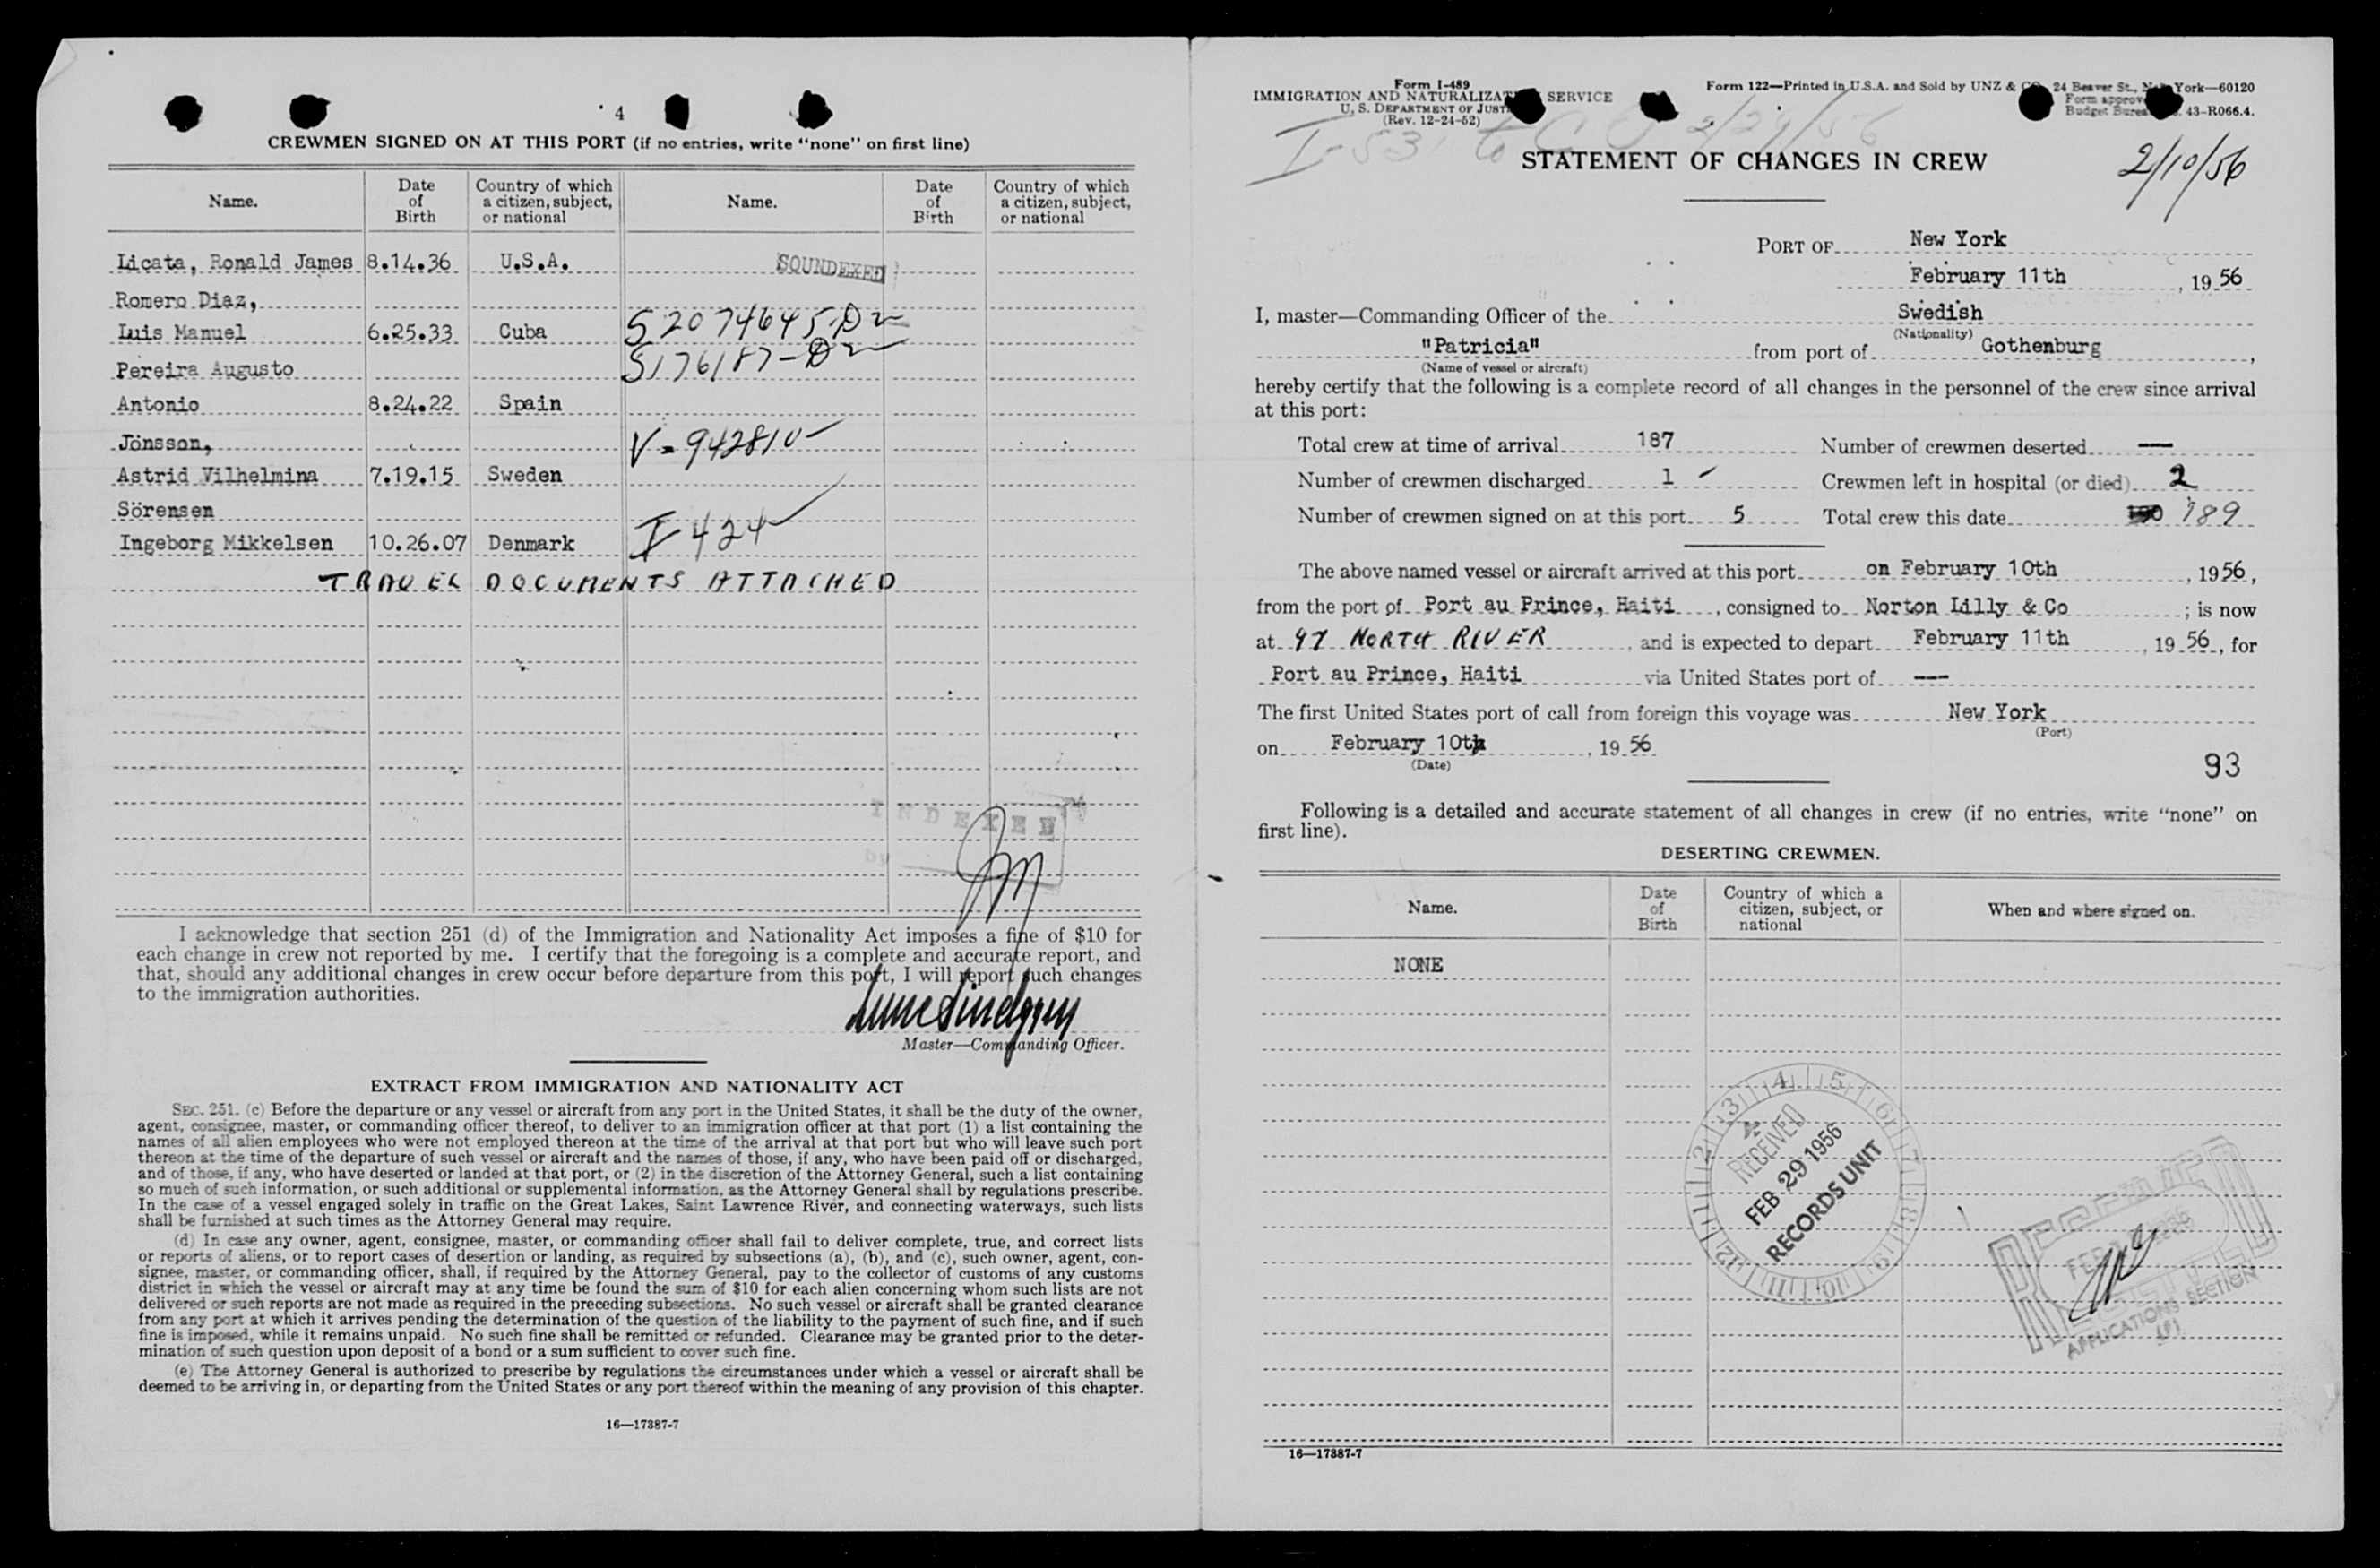 4
CREWMEN SIGNED ON AT THIS PORT (if no entries, write "none" on first line)
Name. Date of Birth Country of which a citizen, subject, or national Name. Date of Birth Country of which a citizen, subject, or national
Licata, Ronald James 8.14.36 U.S.A. SOUNDEXED
Romero Diaz,
Luis Manuel 6.25.33 Cuba S2074645-D
Pereira Augusto S176187-D
Antonio 8.24.22 Spain
Jönsson, V-942810
Astrid Vilhelmina 7.19.15 Sweden
Sörensen
Ingeborg Mikkelsen 10.26.07 Denmark I 424
TRAVEL DOCUMENTS ATTACHED
INDEXED
by
I acknowledge that section 251 (d) of the Immigration and Nationality Act imposes a fine of $10 for
each change in crew not reported by me. I certify that the foregoing is a complete and accurate report, and
that, should any additional changes in crew occur before departure from this port, I will report such changes
to the immigration authorities.
Master—Commanding Officer.
EXTRACT FROM IMMIGRATION AND NATIONALITY ACT
SEC. 251. (c) Before the departure or any vessel or aircraft from any port in the United States, it shall be the duty of the owner,
agent, consignee, master, or commanding officer thereof, to deliver to an immigration officer at that port (1) a list containing the
names of all alien employees who were not employed thereon at the time of the arrival at that port but who will leave such port
thereon at the time of the departure of such vessel or aircraft and the names of those, if any, who have been paid off or discharged,
and of those, if any, who have deserted or landed at that port, or (2) in the discretion of the Attorney General, such a list containing
so much of such information, or such additional or supplemental information, as the Attorney General shall by regulations prescribe.
In the case of a vessel engaged solely in traffic on the Great Lakes, Saint Lawrence River, and connecting waterways, such lists
shall be furnished at such times as the Attorney General may require.
(d) In case any owner, agent, consignee, master, or commanding officer shall fail to deliver complete, true, and correct lists
or reports of aliens, or to report cases of desertion or landing, as required by subsections (a), (b), and (c), such owner, agent, con-
signee, master, or commanding officer, shall, if required by the Attorney General, pay to the collector of customs of any customs
district in which the vessel or aircraft may at any time be found the sum of $10 for each alien concerning whom such lists are not
delivered or such reports are not made as required in the preceding subsections. No such vessel or aircraft shall be granted clearance
from any port at which it arrives pending the determination of the question of the liability to the payment of such fine, and if such
fine is imposed, while it remains unpaid. No such fine shall be remitted or refunded. Clearance may be granted prior to the deter-
mination of such question upon deposit of a bond or a sum sufficient to cover such fine.
(e) The Attorney General is authorized to prescribe by regulations the circumstances under which a vessel or aircraft shall be
deemed to be arriving in, or departing from the United States or any port thereof within the meaning of any provision of this chapter.
16—17387-7
Form I-489
IMMIGRATION AND NATURALIZAT SERVICE
U. S. DEPARTMENT OF JUST
(Rev. 12-24-52)
Form 122—Printed in U.S.A. and Sold by UNZ & CO 24 Beaver St., York—60120
Form approv
Budget Burea 43-R066.4.
I-53 to C O 2/29/56
STATEMENT OF CHANGES IN CREW
2/10/56
PORT OF New York
February 11th, 1956
I, master—Commanding Officer of the Swedish
(Nationality)
"Patricia" from port of Gothenburg,
(Name of vessel or aircraft)
hereby certify that the following is a complete record of all changes in the personnel of the crew since arrival
at this port:
Total crew at time of arrival 187 Number of crewmen deserted —
Number of crewmen discharged 1 Crewmen left in hospital (or died) 2
Number of crewmen signed on at this port 5 Total crew this date 189
The above named vessel or aircraft arrived at this port on February 10th, 1956,
from the port of Port au Prince, Haiti, consigned to Norton Lilly & Co; is now
at 97 NORTH RIVER, and is expected to depart February 11th, 1956, for
Port au Prince, Haiti via United States port of ---
The first United States port of call from foreign this voyage was New York
(Port)
on February 10th, 1956
(Date)
93
Following is a detailed and accurate statement of all changes in crew (if no entries, write "none" on
first line).
DESERTING CREWMEN.
Name. Date of Birth Country of which a citizen, subject, or national When and where signed on.
NONE
RECEIVED
FEB 29 1956
RECORDS UNIT
1 2 3 4 5 6 7 8 9 10 11 12
APPLICATIONS SECTION
16—17387-7